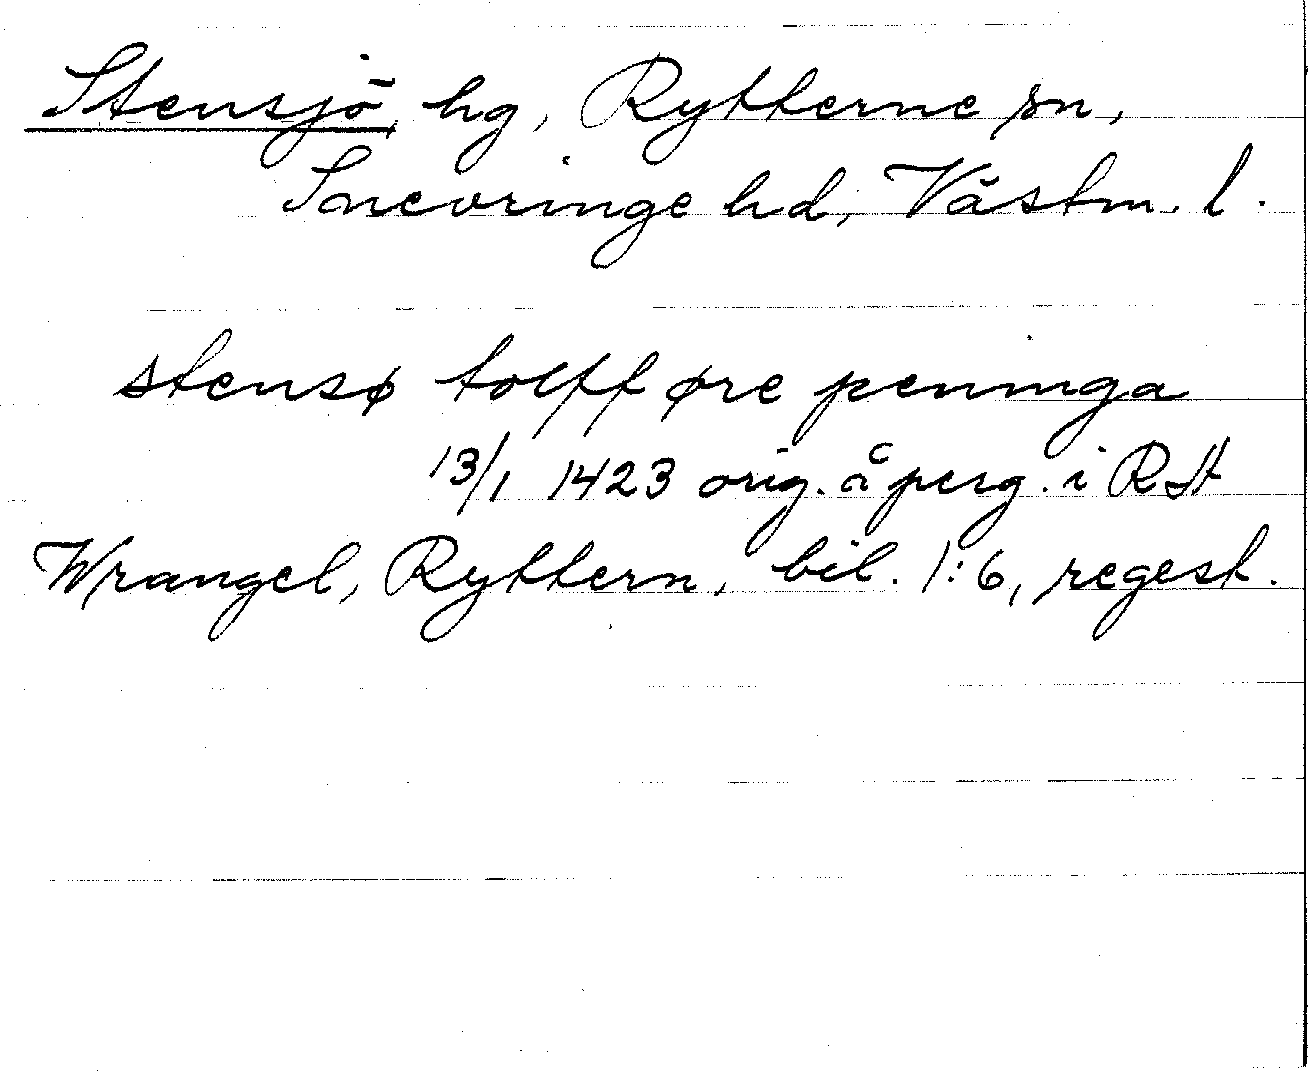 Stensjö, hg, Rytterne sn,
Snevringe hd, Västm. l.
stensø tolff øre peninga
13/1 1423 orig. å perg. i RA
Wrangel, Ryttern, bil. 1:6, regest.